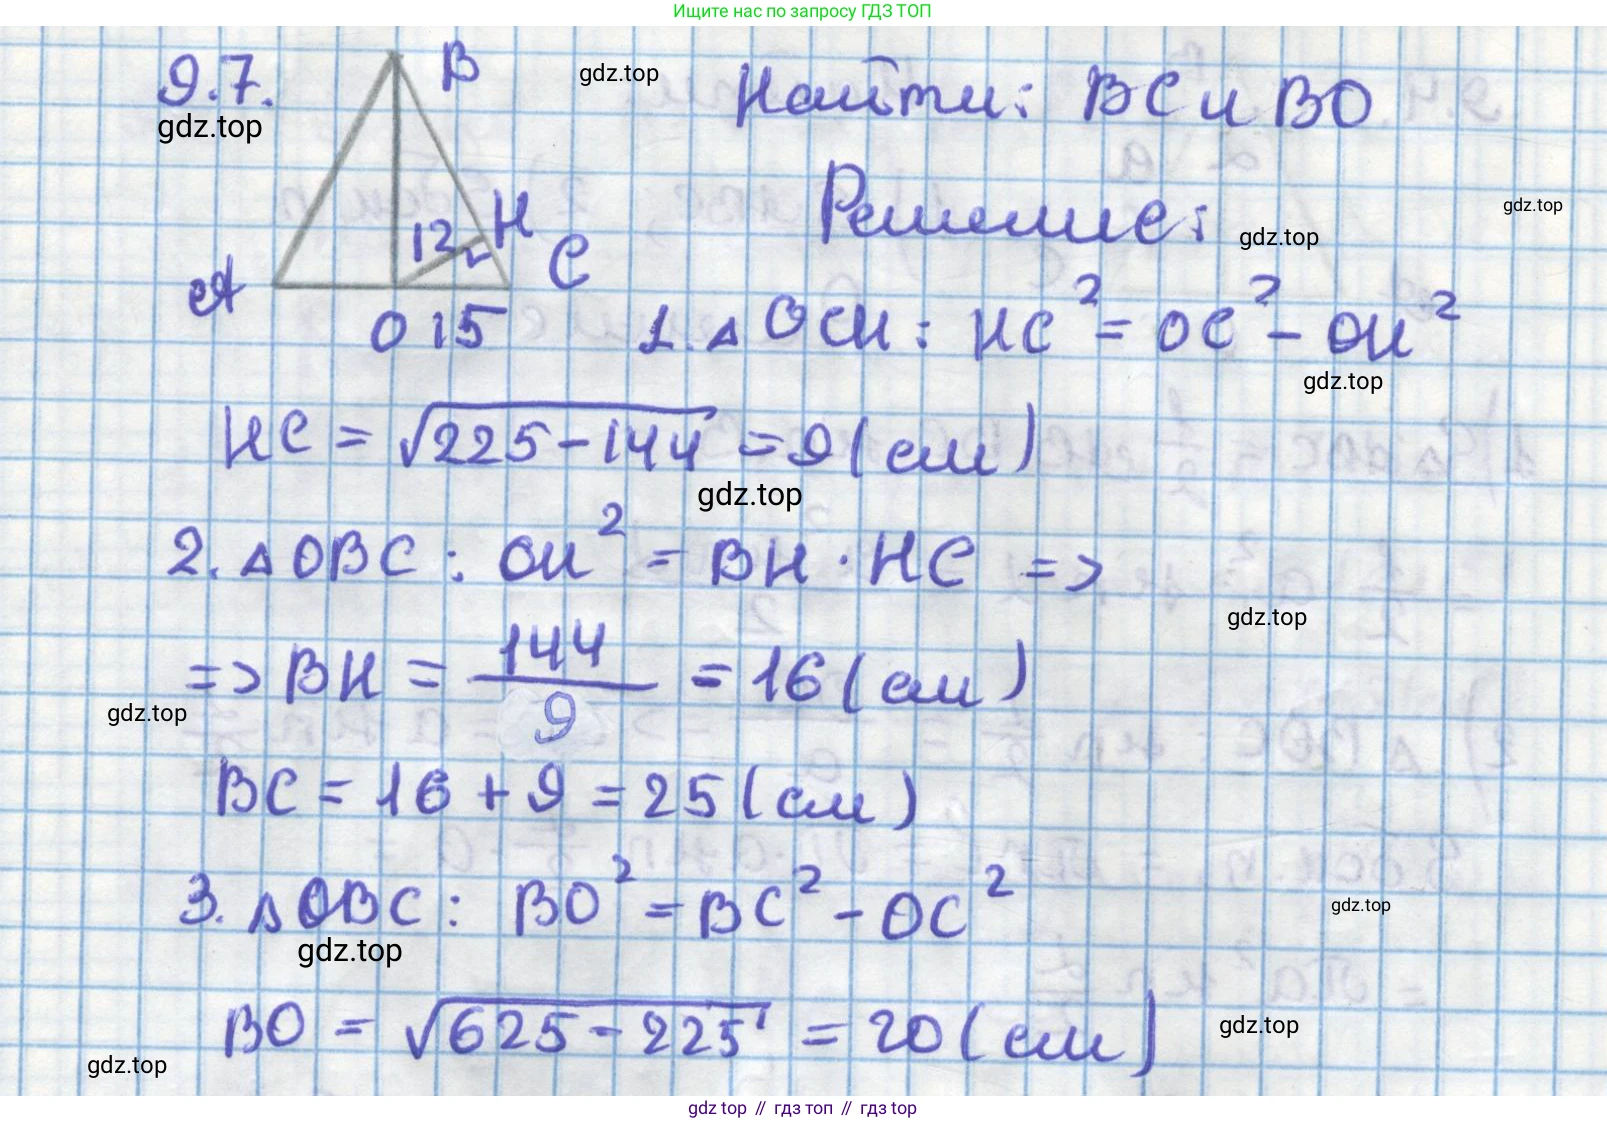 Ищите нас по запросу ГДЗ ТОП
9.7.
B
gdz.top
Найти: BC и BO
gdz.top
Решение:
gdz.top
gdz.top
12
H
C
A
O 15
1. △ OCH: HC² = OC² - OH²
gdz.top
HC = √225-144 = 9 (см)
gdz.top
2. △OBC: OH² = BH · HC =>
gdz.top
=> BH = 144/9 = 16 (см)
gdz.top
BC = 16 + 9 = 25 (см)
3. △OBC: BO² = BC² - OC²
gdz.top
gdz.top
BO = √625-225 = 20 (см)
gdz.top
gdz.top
gdz top // гдз топ // gdz top